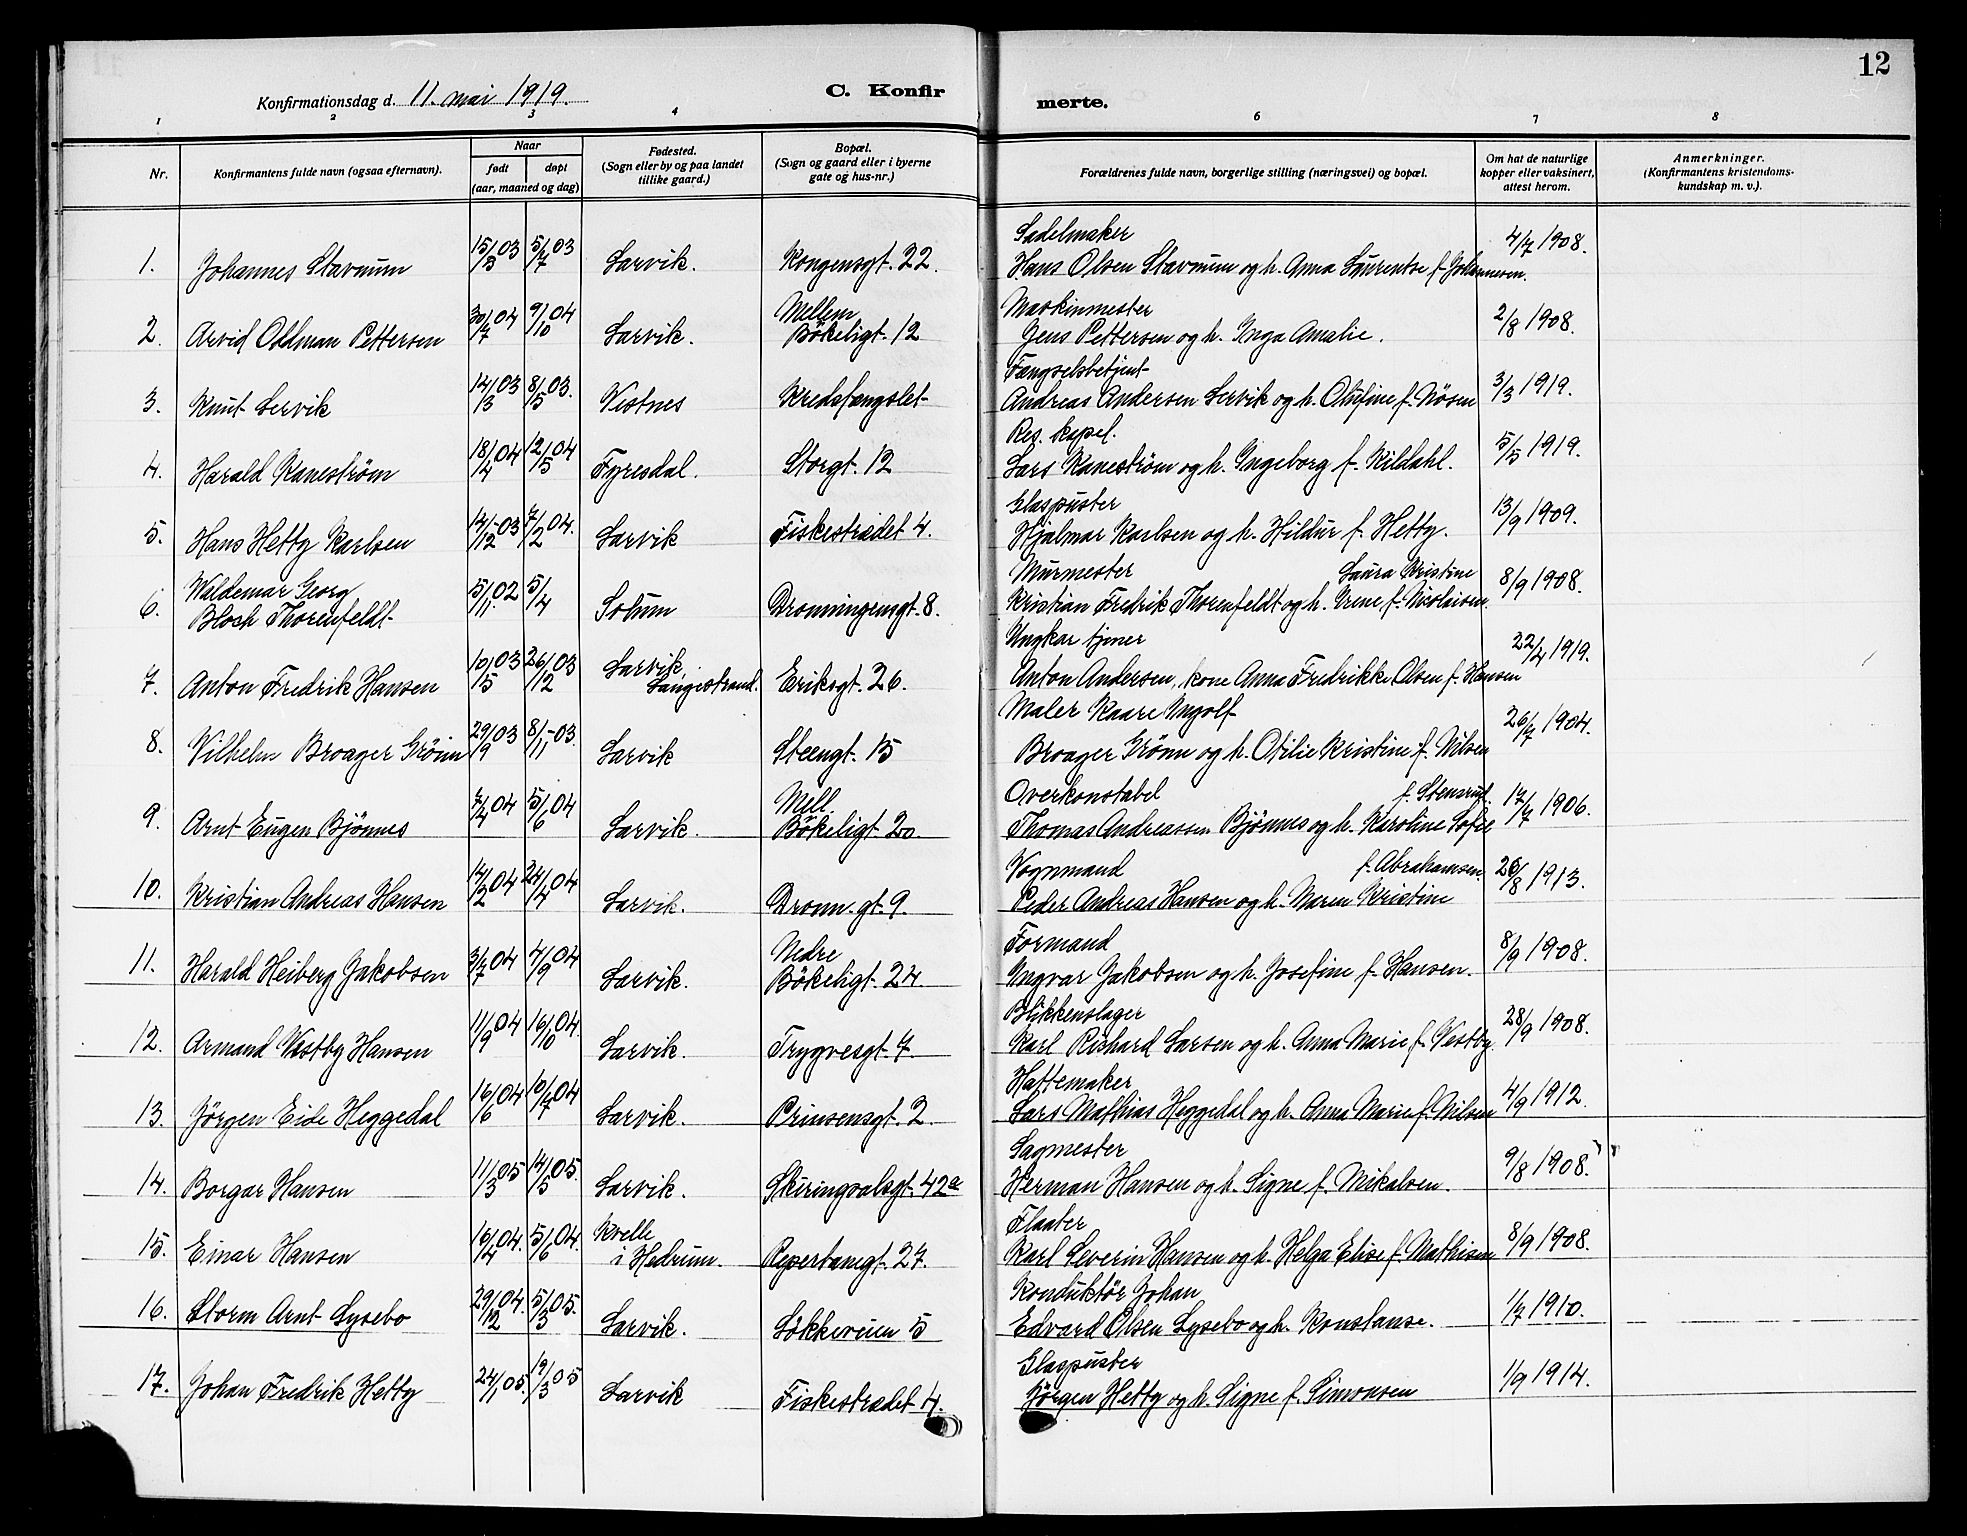 12
Konfirmationsdag d. 11. mai 1919.
C. Konfirmerte.
1 2 3 4 6 7 8
Nr.
Konfirmantens fulde navn (ogsaa efternavn).
Naar
født døpt
(aar, maaned og dag)
Fødested.
(Sogn eller by og paa landet
tillike gaard.)
Bopæl.
(Sogn og gaard eller i byerne
gate og hus-nr.)
Forældrenes fulde navn, borgerlige stilling (næringsvei) og bopæl.
Om hat de naturlige
kopper eller vaksinert,
attest herom.
Anmerkninger.
(Konfirmantens kristendoms-
kundskap m. v.).
Sadelmaker
1. Johannes Stavnum 15/5 03 5/7 03 Larvik. Kongensgt. 22. Hans Olsen Stavnum og h. Anna Laurentse f. Johannesen. 4/7 1908.
Mellem Maskinmester
2. Arvid Oddman Pettersen 30/7 04 9/10 04 Larvik. Bökeligt. 12 Jens Pettersen og h. Inga Amalie. 2/8 1908.
Fængselsbetjent
3. Knut Lervik 14/3 03 8/5 03. Vestnes Kredsfængslet Andreas Andersen Lervik og h. Olufine f. Nösen 3/3 1919.
Res. kapel.
4. Harald Kaneström 18/4 04 12/5 04 Fyresdal. Storgt. 12 Lars Kaneström og h. Ingeborg f. Kildahl. 5/5 1919.
Glaspuster
5. Hans Hetty Karlsen 14/12 03 7/2 04. Larvik Fiskestrædet 4. Hjalmar Karlsen og h. Hildur f. Hetty. 13/9 1909.
Waldemar Georg Murmester Laura Kristine
6. Bloch Thorenfeldt 5/11. 02 5/4 Solum Dronningensgt. 8. Kristian Fredrik Thorenfeldt og h. Irene f. Nicolaisen. 8/9 1908.
Larvik, Ungkar tjener
7. Anton Fredrik Hansen 10/5 03 26/12 03 Langestrand. Eriksgt. 26. Anton Andersen, kone Anna Fredrikke Olsen f. Hansen 22/4 1919.
Maler Kaare Ingolf
8. Vilhelm Broager Grönn 29/9 03 8/11 03. Larvik Steengt. 15 Broager Grönn og h. Otilie Kristine f. Nilsen 26/7 1904.
Mell. Overkonstabel f. Stensrud.
9. Arnt Eugen Bjönnes 7/4 04 5/6 04 Larvik. Bökeligt. 20 Thomas Andreassen Bjönnes og h. Karoline Sofie 17/7 1906.
Vognmand f. Abrahamsen.
10. Kristian Andreas Hansen 14/2 04 24/4 04 Larvik. Dronn. gt. 9. Peder Andreas Hansen og h. Maren Kristine 26/8 1913.
Nedre Formand
11. Harald Heiberg Jakobsen 3/7 04 4/9 04 Larvik. Bökeligt. 24 Ingvar Jakobsen og h. Josefine f. Hansen. 8/9 1908.
Blikkenslager
12. Armand Vestby Hansen 11/9 04 16/10 04. Larvik. Trygvesgt. 7. Karl Richard Larsen og h. Anna Marie f. Vestby 28/9 1908.
Hattemaker
13. Jörgen Eide Heggedal 16/6 04 10/7 04 Larvik. Prinsensgt. 2. Lars Mathias Heggedal og h. Anna Marie f. Nilsen 4/9 1912.
Sagmester
14. Borgar Hansen 11/3 05 14/5 05. Larvik. Skiringsalsgt. 42a Herman Hansen og h. Signe f. Mikalsen. 9/8 1908.
Kvelle Flaater
15. Einar Hansen 16/4 04. 5/6 04. i Hedrum. Reperbanegt. 27. Karl Severin Hansen og h. Helga Elise f. Mathisen 8/9 1908.
Konduktör Johan
16. Storm Arnt Lysebo 29/12 04. 5/3 05. Larvik. Lökkeveien 5 Edvard Olsen Lysebo og h. Konstanse. 1/7 1910.
Glaspuster
17. Johan Fredrik Hetty 24/1 05. 19/3 05 Larvik Fiskestrædet 4. Jörgen Hetty og h. Signe f. Simonsen 1/9 1914.